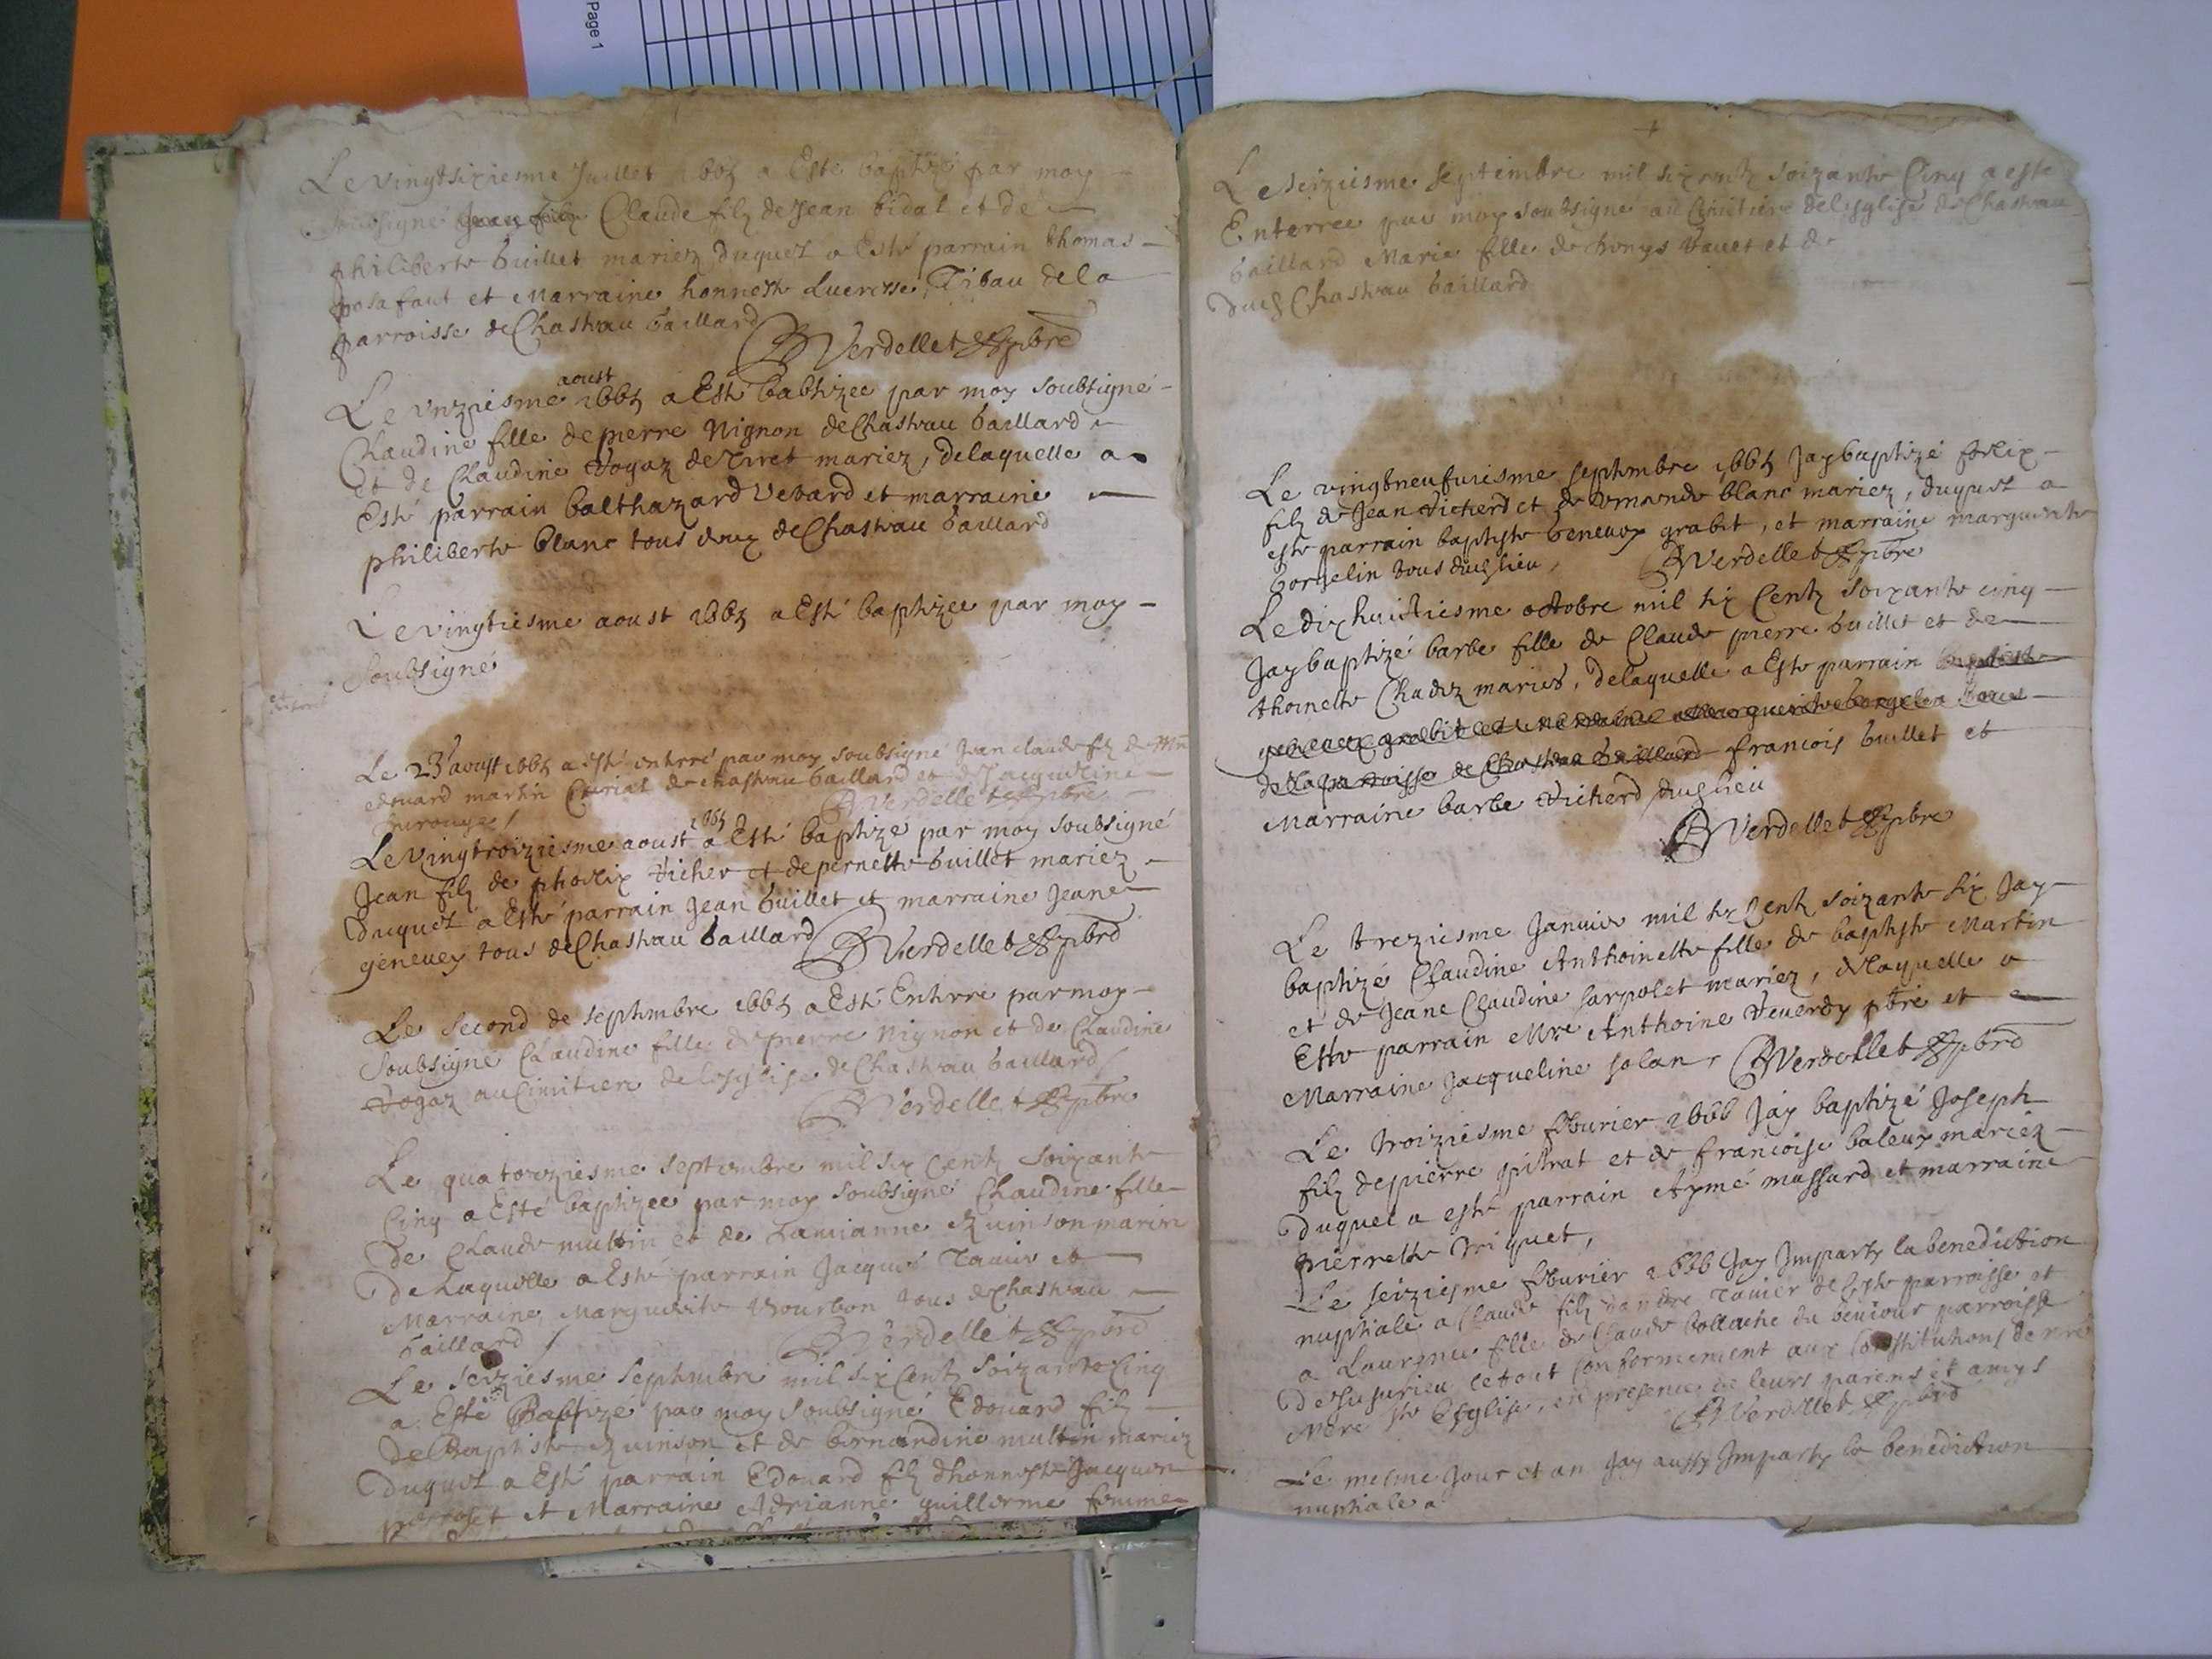 Page 1
Le vingtsixiesme Juillet 1665 a Esté baptizé par moy
soubsigné Claude filz de Jean bidal et de
philiberte buillet mariez duquel a Esté parrain thomas
et Marraine honneste Tibau de la
parroisse de Chasteau baillard
Verdellet pbre
Le unziesme aoust 1665 a Esté babtizee par moy soubsigné
Claudine fille de pierre Nignon de Chasteau baillard
et de Claudine Vogaz de mariez, de laquelle a
Esté parrain balthazard Vevard et marraine
philiberte blanc tous deux de Chasteau baillard
Le vingtiesme aoust 1665 a Esté baptizee par moy
Soubsigné
Le 23 aoust 1665 a esté enterré par moy soubsigné Jean claude filz de
edouard martin de chasteau baillard et de Jacqueline
Verdellet pbre
Le Vingtroiziesme aoust 1665 a Esté baptize par moy soubsigné
Jean filz de phoelix Vicher et de pernette buillet mariez
duquel a Esté parrain Jean buillet et marraine Jeane
genevey tous de Chasteau baillard Verdellet pbre
Le second de septembre 1665 a Esté Enterre par moy
soubsigné Claudine fille de pierre Nignon et de Claudine
Vogaz au Cimitiere de lesglise de Chasteau baillard
Verdellet pbre
Le quatorziesme septembre mil six Centz soixante
Cinq a Esté baptizee par moy soubsigné Claudine fille
de Claude multin et de quinson mariez
De Laquelle a Esté parrain Jacques Tavier et
Marraine Marguerite bourbon tous de Chasteau
baillard
Verdellet pbre
Le seiziesme septembre mil six Centz Soizante Cinq
a Esté Baptizé par moy soubsigné Edouard filz
De Baptiste quinson et de bernardine multin mariez
duquel a Esté parrain Edouard filz dhonneste Jacques
et Marraine Adrianne guillerme femme
Le seiziesme septembre mil six centz soizante Cinq a este
Enterree par moy soubsigné au Cimitiere de lesglise de Chasteau
baillard Marie fille de et de
dudz Chasteau baillard
Le vingtneufviesme septembre 1665 Jay baptizé foelix
filz de Jean Vicherd et de blanc mariez, duquel a
este parrain baptiste genevox grabit, et marraine marguerite
borgelin tous dudz lieu, Verdellet pbre
Le dix huictiesme octobre mil six Centz soixante cinq
Jay baptizé barbe fille de Claude pierre buillet et de
thoinette mariés, de laquelle a Este parrain baptiste
genevox grabit et marraine marguerite borgelin tous
de la parroisse de Chasteau baillard francois buillet et
Marraine barbe Vicherd dudz lieu
Verdellet pbre
Le treziesme Janvier mil six Centz soizante six Jay
baptizé Claudine Anthoinette fille de baptiste Martin
et de Jeane Claudine sarpolet mariez, de laquelle a
Este parrain Mre Anthoine pbre et
Marraine Jacqueline solan, Verdellet pbre
Le troiziesme febvrier 1666 Jay baptizé Joseph
filz de pierre pitrat et de francoise baleux mariez
Duquel a esté parrain Aymé mussard et marraine
pierrette triquet,
Le seiziesme febvrier 1666 Jay Imparty la benediction
nuptiale a Claude filz dandre Tavier de ceste parroisse et
a Laurence fille de Claude du parroisse
De Jujurieu le tout conformement aux constitutions de nre
Mere ste Esglise, en presence de leurs parens et amys
Verdellet pbre
Le mesme Jour et an Jay aussy Imparty la benediction
nuptiale a